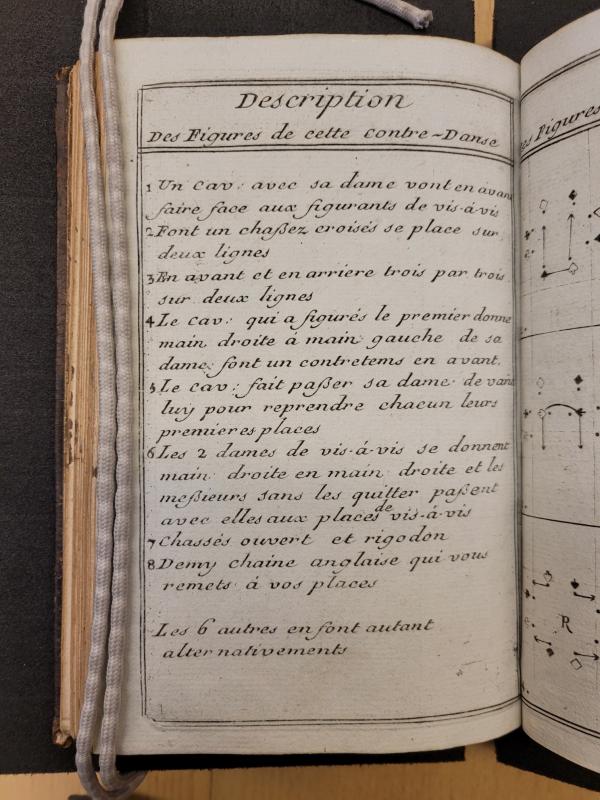 Description
Des Figures de cette Contre-Danse
1 Un cav: avec sa dame vont en avant
faire face aux figurants de vis-á-vis
2 Font un chaßez croisés se place sur
deux lignes
3 En avant et en arriere trois par trois
sur deux lignes
4 Le cav: qui a figurés le premier donne
main droite à main gauche de sa
dame font un contretems en avant.
5 Le cav: fait paßer sa dame de vant
luy pour reprendre chacun leurs
premieres places
6 Les 2 dames de vis-á-vis se donnent
main droite en main droite et les
meßieurs sans les quitter paßent
avec elles aux places de vis-á-vis
7 Chassés ouvert et rigodon
8 Demy chaine anglaise qui vous
remets á vos places
Les 6 autres en font autant
alternativements
es Figures
R